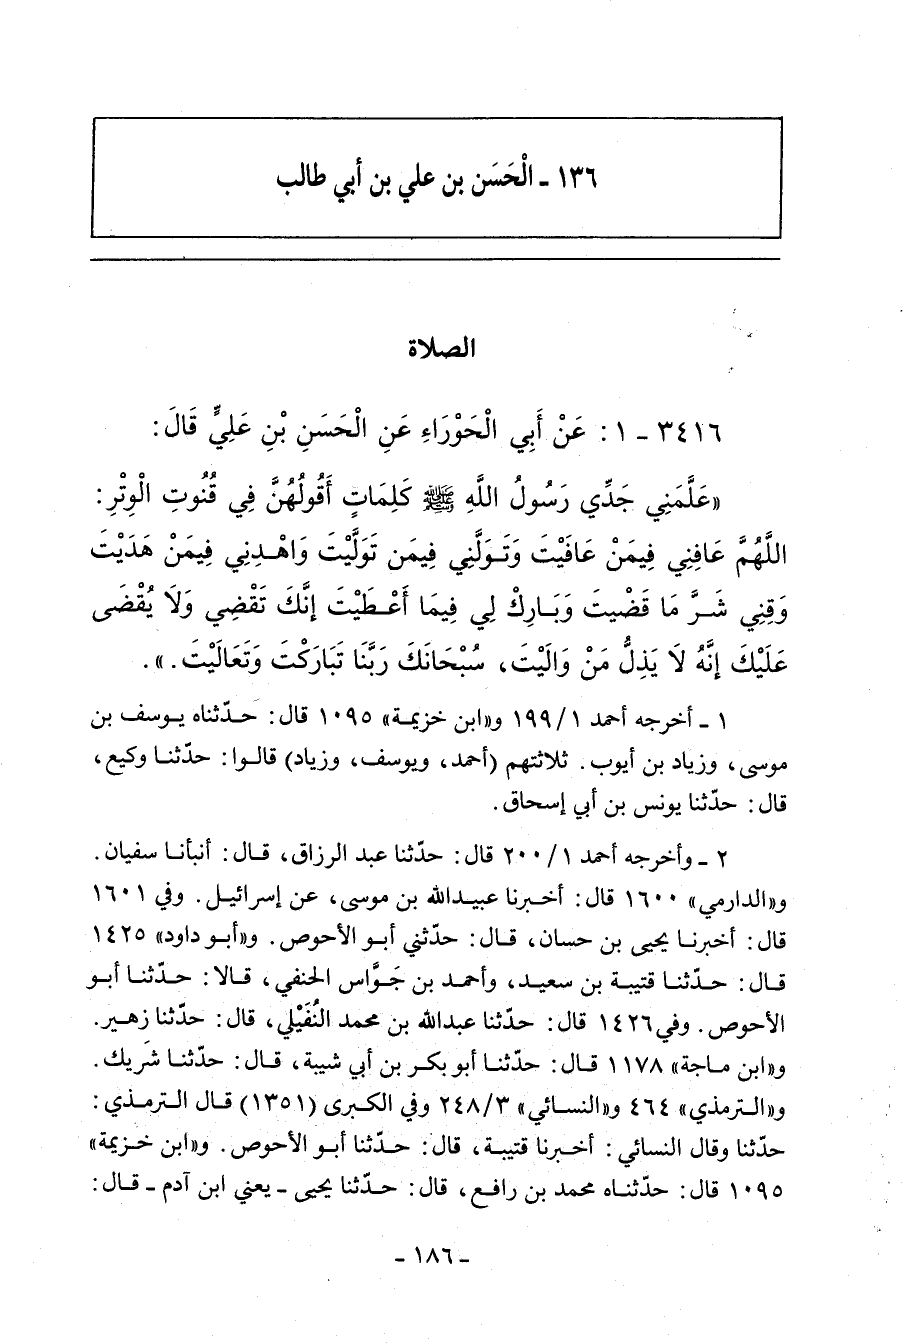 ١٣٦ - الْحَسَن بن علي بن أبي طالب
الصلاة
٣٤١٦ - ١ : عَنْ أَبِي الْحَوْرَاءِ عَنِ الْحَسَنِ بْنِ عَلِيٍّ قَالَ :
«عَلَّمَنِي جَدِّي رَسُولُ اللَّهِ ﷺ كَلِمَاتٍ أَقُولُهُنَّ فِي قُنُوتِ الْوِتْرِ :
اللَّهُمَّ عَافِنِي فِيمَنْ عَافَيْتَ وَتَوَلَّنِي فِيمَن تَوَلَّيْتَ وَاهْدِنِي فِيمَنْ هَدَيْتَ
وَقِنِي شَرَّ مَا قَضَيتَ وَبَارِكْ لِي فِيمَا أَعْطَيْتَ إِنَّكَ تَقْضِي وَلَا يُقْضَى
عَلَيْكَ إِنَّهُ لَا يَذِلُّ مَنْ وَالَيْتَ، سُبْحَانَكَ رَبَّنَا تَبَارَكْتَ وَتَعَالَيْتَ.».
١ - أخرجه أحمد ١/ ١٩٩ و«ابن خزيمة» ١٠٩٥ قال: حدّثناه يوسف بن
موسى، وزياد بن أيوب. ثلاثتهم (أحمد، ويوسف، وزياد) قالوا: حدّثنا وكيع،
قال: حدّثنا يونس بن أبي إسحاق.
٢ - وأخرجه أحمد ١/ ٢٠٠ قال: حدّثنا عبد الرزاق، قال: أنبأنا سفيان.
و«الدارمي» ١٦٠٠ قال: أخبرنا عبيدالله بن موسى، عن إسرائيل. وفي ١٦٠١
قال: أخبرنا يحيى بن حسان، قال: حدّثني أبو الأحوص. و«أبو داود» ١٤٢٥
قال: حدّثنا قتيبة بن سعيد، وأحمد بن جَوَّاس الحنفي، قالا: حدّثنا أبو
الأحوص. وفي١٤٢٦ قال: حدّثنا عبدالله بن محمد النُفَيْلي، قال: حدّثنا زهير.
و«ابن ماجة» ١١٧٨ قال: حدّثنا أبو بكر بن أبي شيبة، قال: حدّثنا شَريك.
و«الترمذي» ٤٦٤ و«النسائي» ٢٤٨/٣ وفي الكبرى (١٣٥١) قال الترمذي:
حدّثنا وقال النسائي: أخبرنا قتيبة، قال: حدّثنا أبو الأحوص. و«ابن خزيمة»
١٠٩٥ قال: حدّثناه محمد بن رافع، قال: حدّثنا يحيى - يعني ابن آدم - قال:
- ١٨٦ -